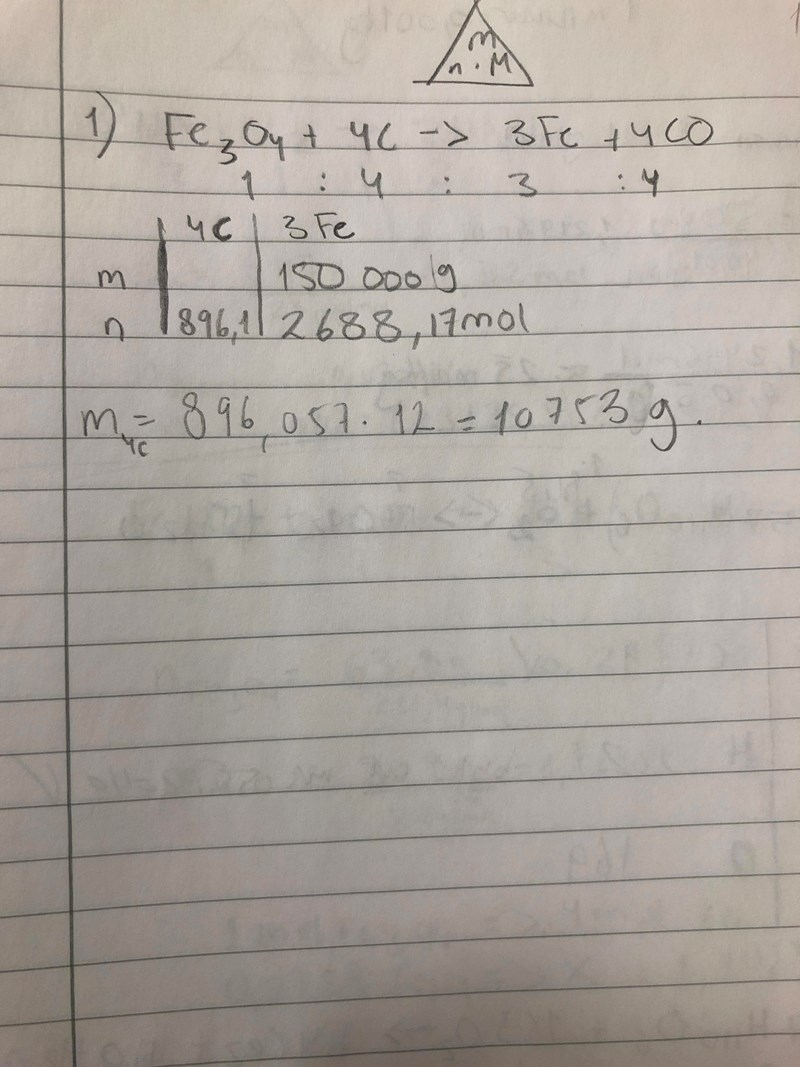 m
n · M
1) Fe₃O₄ + 4C -> 3Fe + 4CO
1 : 4 : 3 : 4
4C 3Fe
m 150 000 g
n 896,1 2688,17mol
m4C = 896,057 · 12 = 10753 g.